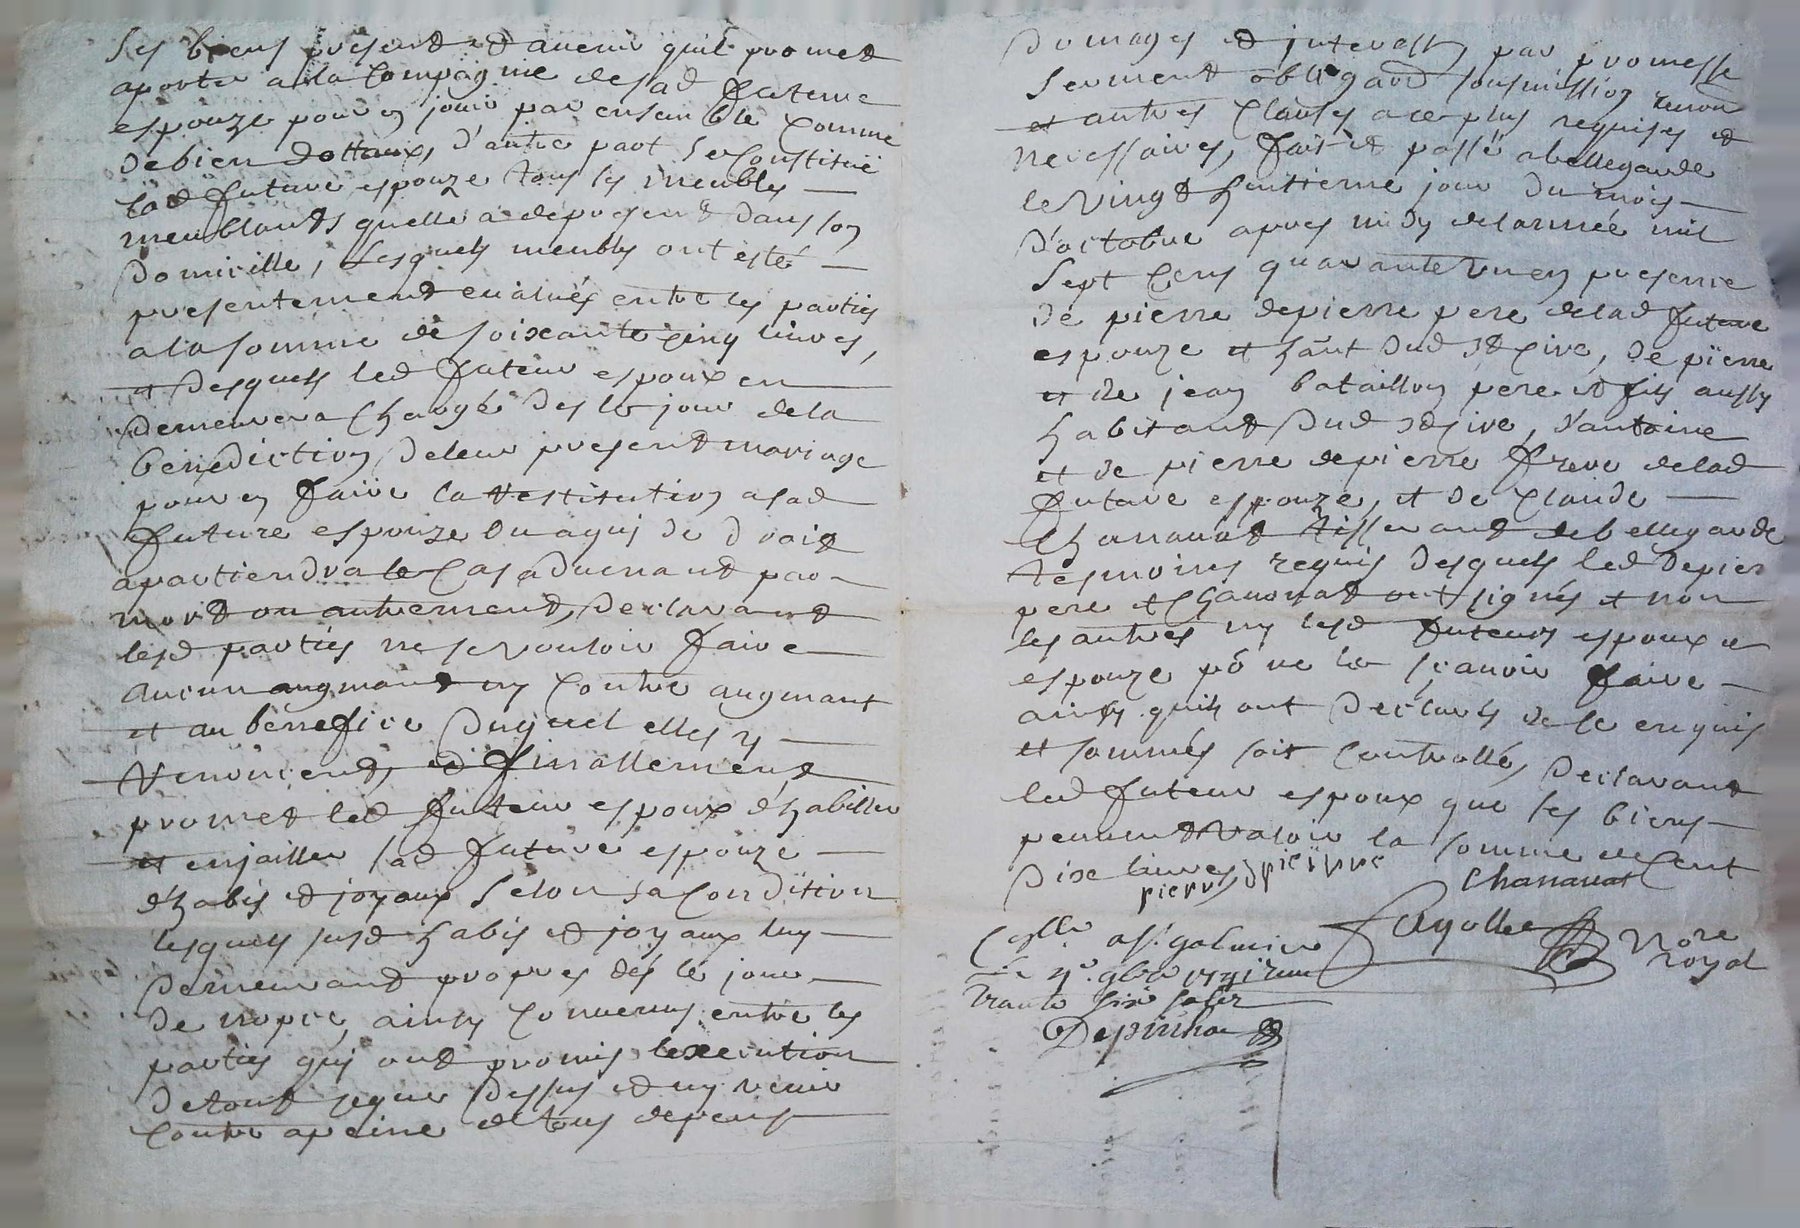 ses biens present et avenir quil promet
aporter a la compagnie de sad future
espouze pour en jouir par ensemble comme
de bien dottaux, d'autre part se constitüe
lad future espouze tous les meubles
meublants quelle a de present dans son
domicille, lesquels meubles ont esté
presentement evalués entre les parties
a la somme de soixante cinq livres,
et desquels led futeur espoux en
demeurera chargé des le jour de la
benediction de leur present mariage
pour en faire la restitution a sad
future espouze ou a qui de droit
apartiendra le cas advenant par
mort ou autrement, declarant
lesd parties ne se vouloir faire
aucun augmant ny contre augmant
et au benefice duquel elles y
renoncent, et finallement
promet led futeur espoux d'habiller
et enjailler sad future espouze
d'habis et joyaux selon sa condition
lesquels susd habis et joyaux luy
demeurant propres dés le jour
de nopce, ainsy convenus entre les
parties qui ont promis lexecution
de tout ce que dessus et ny venir
contre a peine de tous depens
domages et interests, par promesse
serment obligaon sousmission renon
et autres clauses a ce plus requises et
necessaires, fait et passé a bellegarde
le vingt huitieme jour du mois
d'octobre apres midy de lannée mil
sept cens quarante un en presence
de pierre depierre pere de lad future
espouze et hant dud st cire, de pierre
et de jean bataillon pere et fils aussy
habitant dud st cire, d'antoine
et de pierre depierre frere de lad
future espouze, et de claude
chanavat tisserant de bellegarde
tesmoins requis desquels led depier
pere et chanavat ont signés et non
les autres ny lesd futeurs espoux et
espouze po ne le sçavoir faire
ainsy quils ont declarés de ce enquis
et sommés soit controllé, declarant
led futeur espoux que ses biens
peuvent valoir la somme de cent
dix livres
pierre depierre
Chanavat
Fayolle Nore royal
Collé a st galmier
le 4e 9bre 1741 reçu
trante six sols
Depinhac